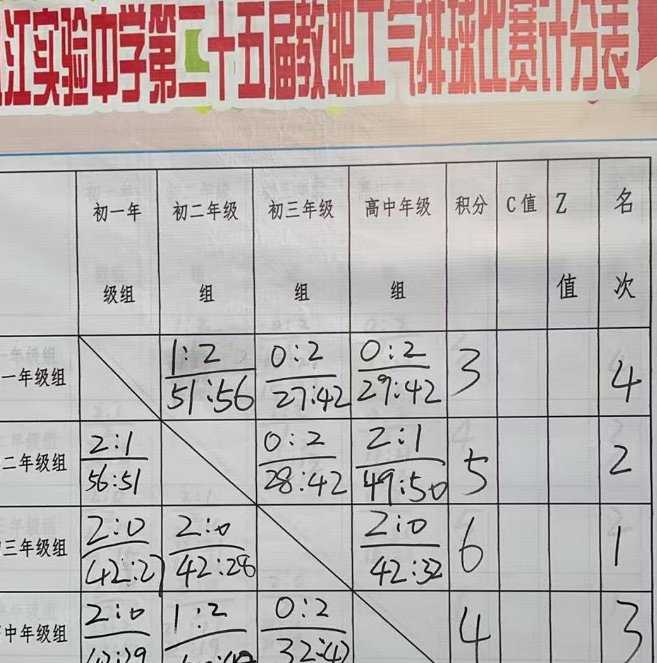 江实验中学第二十五届教职工气排球比赛计分表
初一年级组 初二年级组 初三年级组 高中年级组 积分 C值 Z值 名次
一年级组 1:2 0:2 0:2 3 4
51:56 27:42 29:42
二年级组 2:1 0:2 2:1 5 2
56:51 28:42 49:50
三年级组 2:0 2:0 2:0 6 1
42:27 42:28 42:32
中年级组 2:0 1:2 0:2 4 3
42:29 32:42